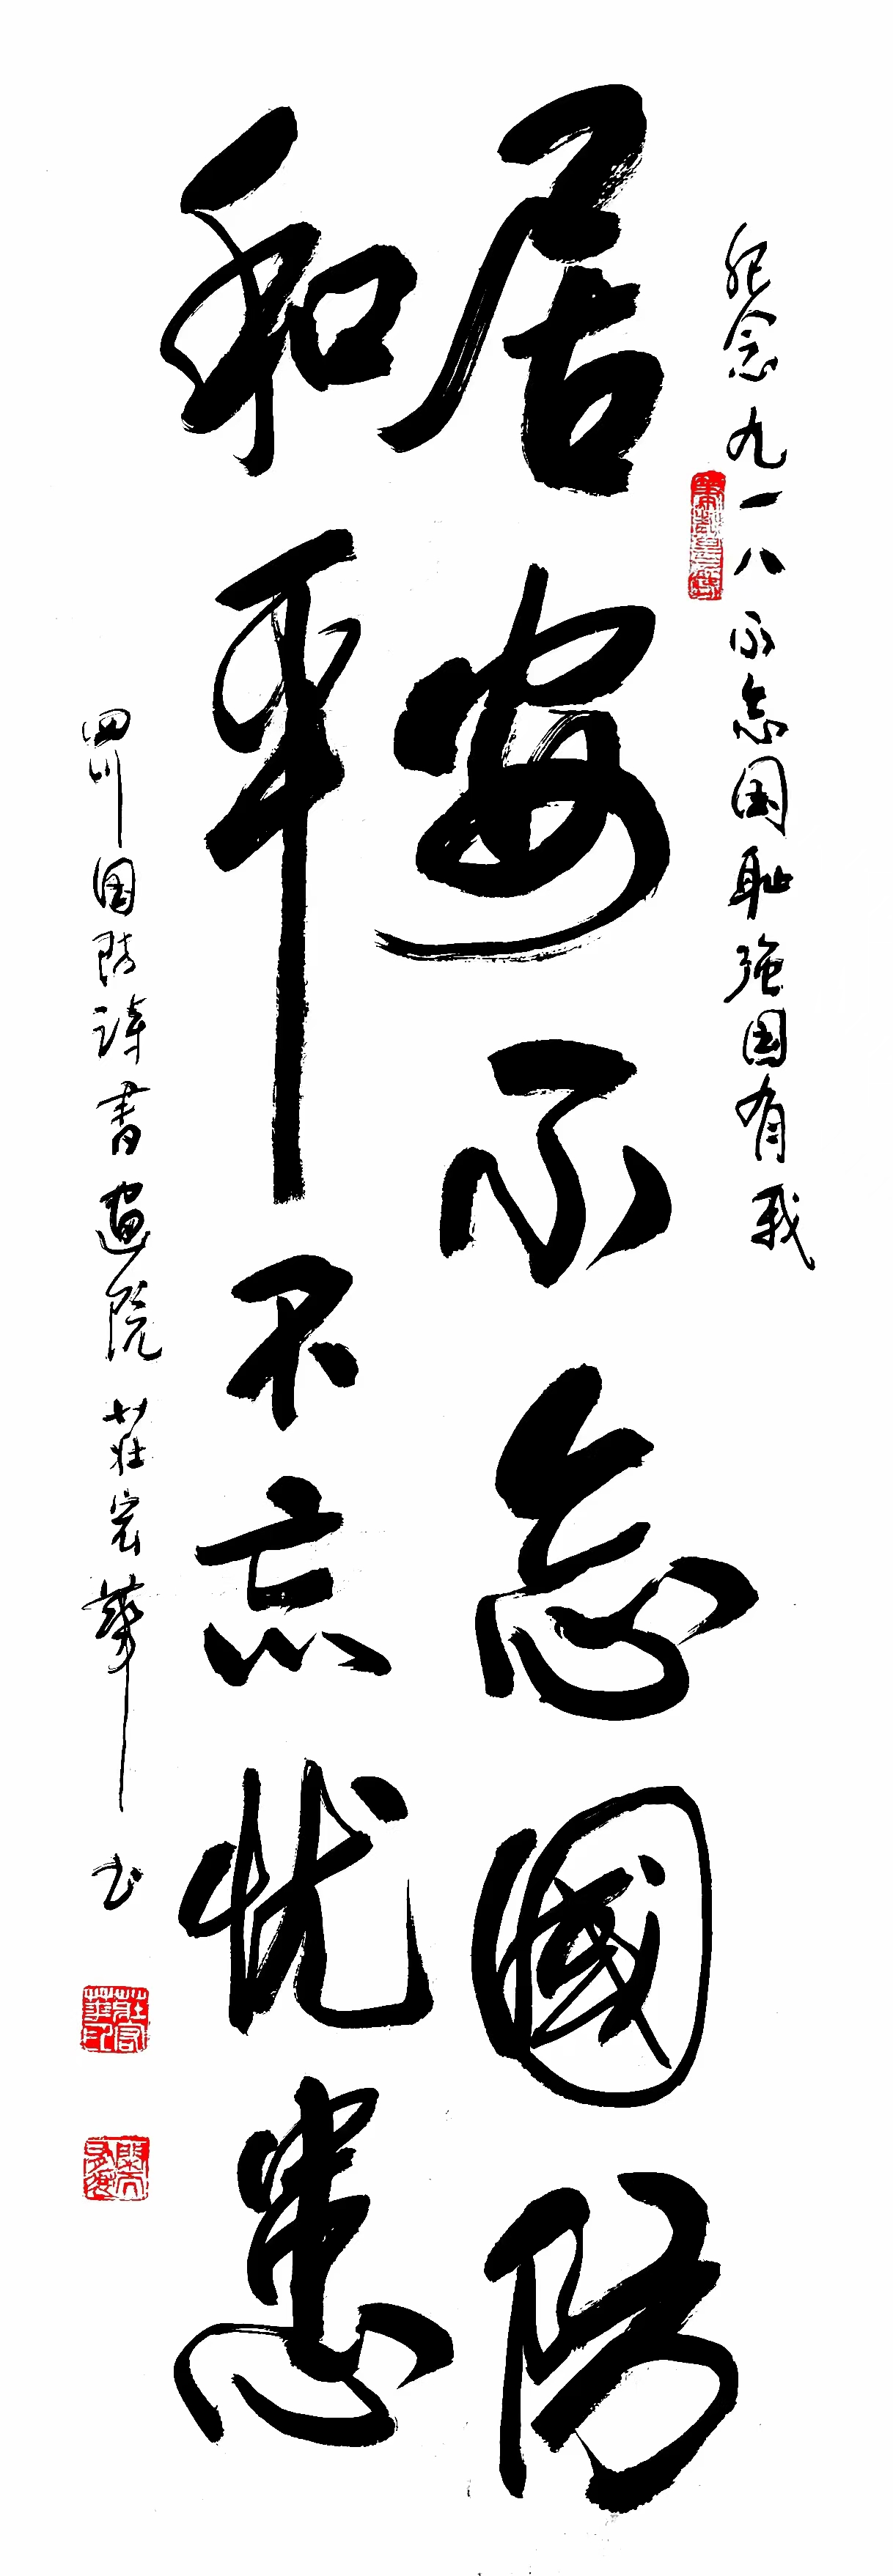 纪念九一八不忘国耻强国有我
居安不忘國防
和平不忘忧患
四川国防诗书畫院莊宏華书
莊宏華印